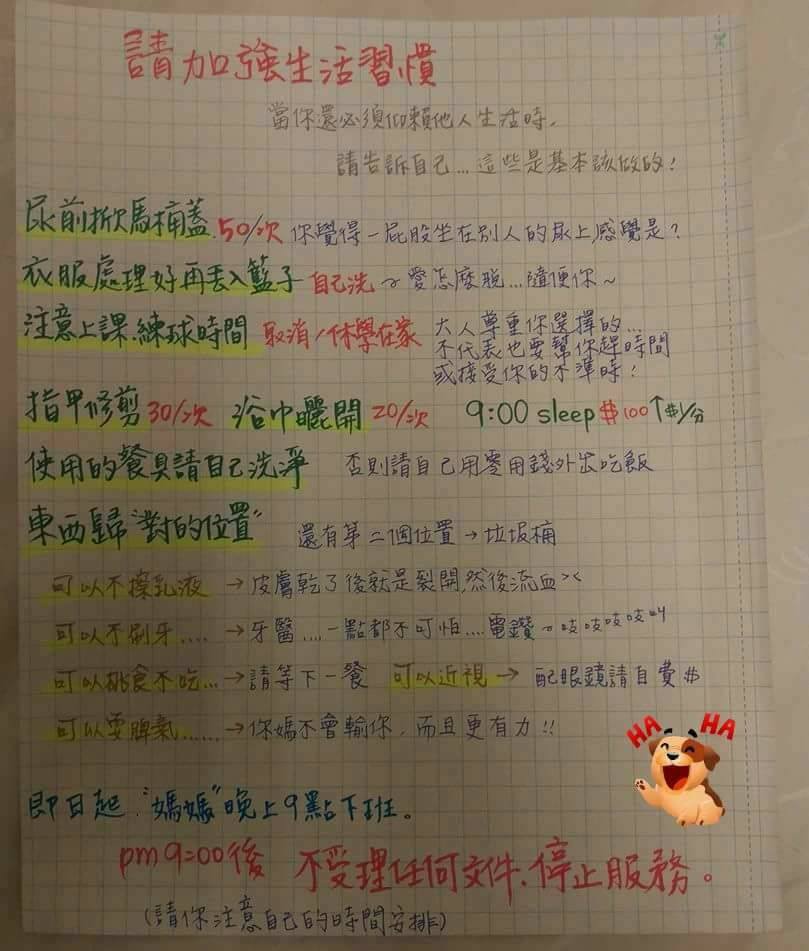 請加強生活習慣
當你還必須仰賴他人生活時,
請告訴自己...這些是基本該做的!
尿前掀馬桶蓋 50/次 你覺得一屁股坐在別人的尿上,感覺是?
衣服處理好再丟入籃子 自己洗~愛怎麼脫...隨便你~
注意上課、練球時間 取消/休學在家 大人尊重你選擇的...
不代表也要幫你趕時間
或接受你的不準時!
指甲修剪 30/次 浴巾曬開 20/次 9:00 sleep $100↑$1/分
使用的餐具請自己洗淨 否則請自己用零用錢外出吃飯
東西歸"對的位置" 還有第二個位置→垃圾桶
可以不擦乳液 →皮膚乾了後就是裂開,然後流血><
可以不刷牙.... →牙醫....一點都不可怕....電鑽~吱吱吱吱叫
可以挑食不吃... →請等下一餐 可以近視→ 配眼鏡請自費$
可以耍脾氣...... →你媽不會輸你、而且更有力!!
HA HA
即日起、"媽媽"晚上9點下班。
pm9:00後 不受理任何文件、停止服務。
(請你注意自己的時間安排)